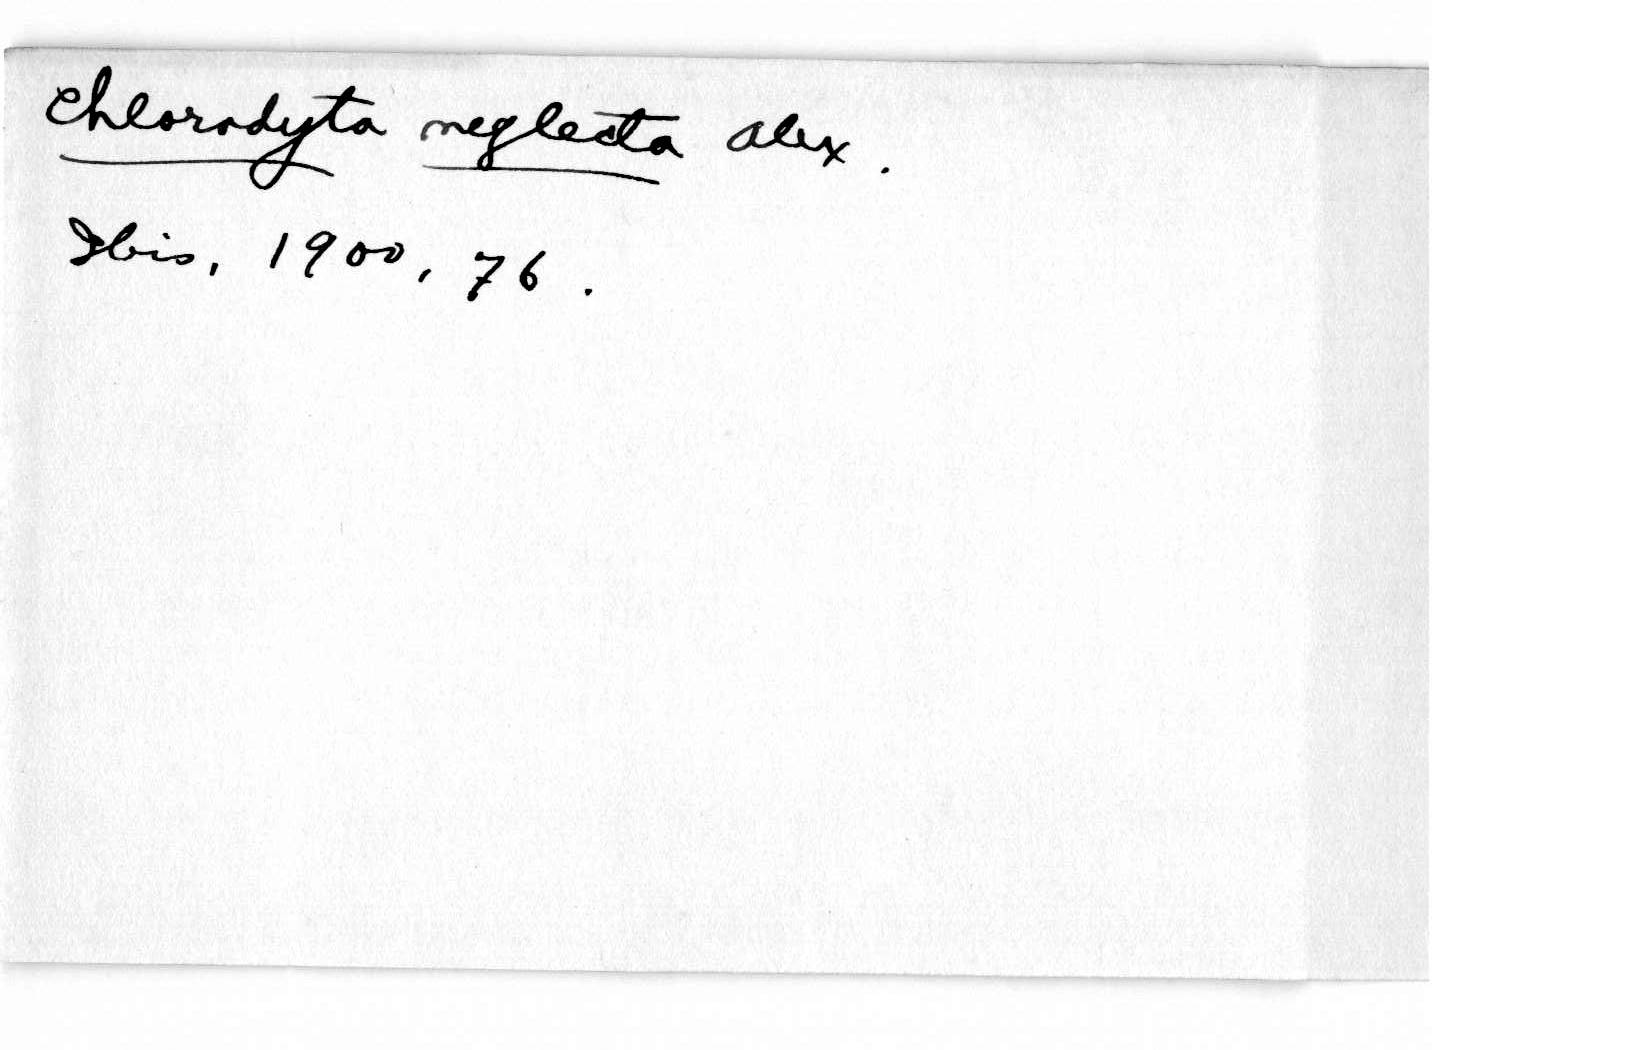 Chlorodyta neglecta Alex.
Ibis, 1900, 76.